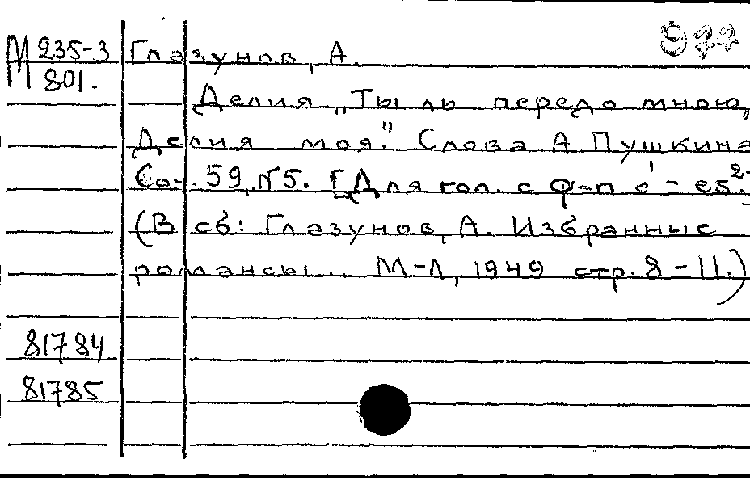 М 235-3 Глазунов, А. 922
М 801.
Делия „Ты ль передо мною,
Делия моя." Слова А Пушкина
Соч. 59, №5. [Для гол. с ф-п c¹ - es².]
(В сб: Глазунов, А. Избранные
романсы... М-Л, 1949 стр. 8-11.)
81784
81785